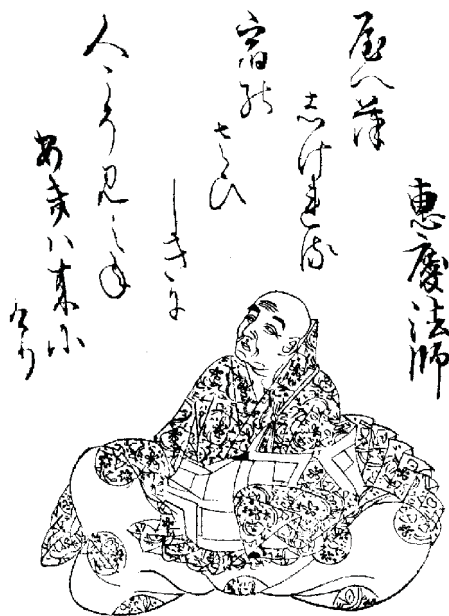 惠慶法師
屋へ葎
しけれる
宿の
さひ
しきに
人こそ見えね
あきハ来に
けり